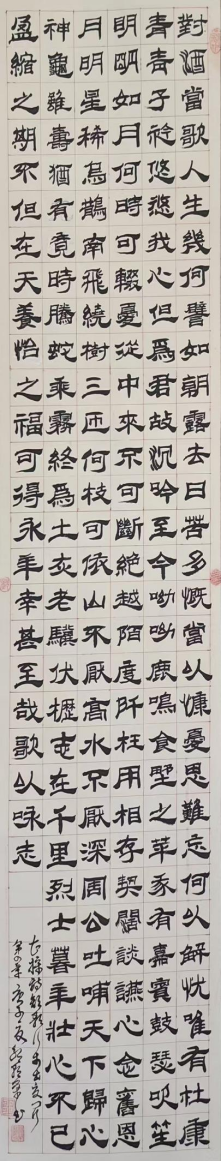 對酒當歌人生幾何譬如朝露去日苦多慨當以慷憂思難忘何以解忧唯有杜康
青青子衿悠悠我心但為君故沉吟至今呦呦鹿鳴食野之苹我有嘉賓鼓瑟吹笙
明明如月何時可輟憂從中來不可斷絕越陌度阡枉用相存契闊談讌心念舊恩
月明星稀烏鵲南飛繞樹三匝何枝可依山不厭高水不厭深周公吐哺天下歸心
神龜雖壽猶有竟時騰蛇乘霧終為土灰老驥伏櫪志在千里烈士暮年壯心不已
盈縮之期不但在天養怡之福可得永年幸甚至哉歌以咏志